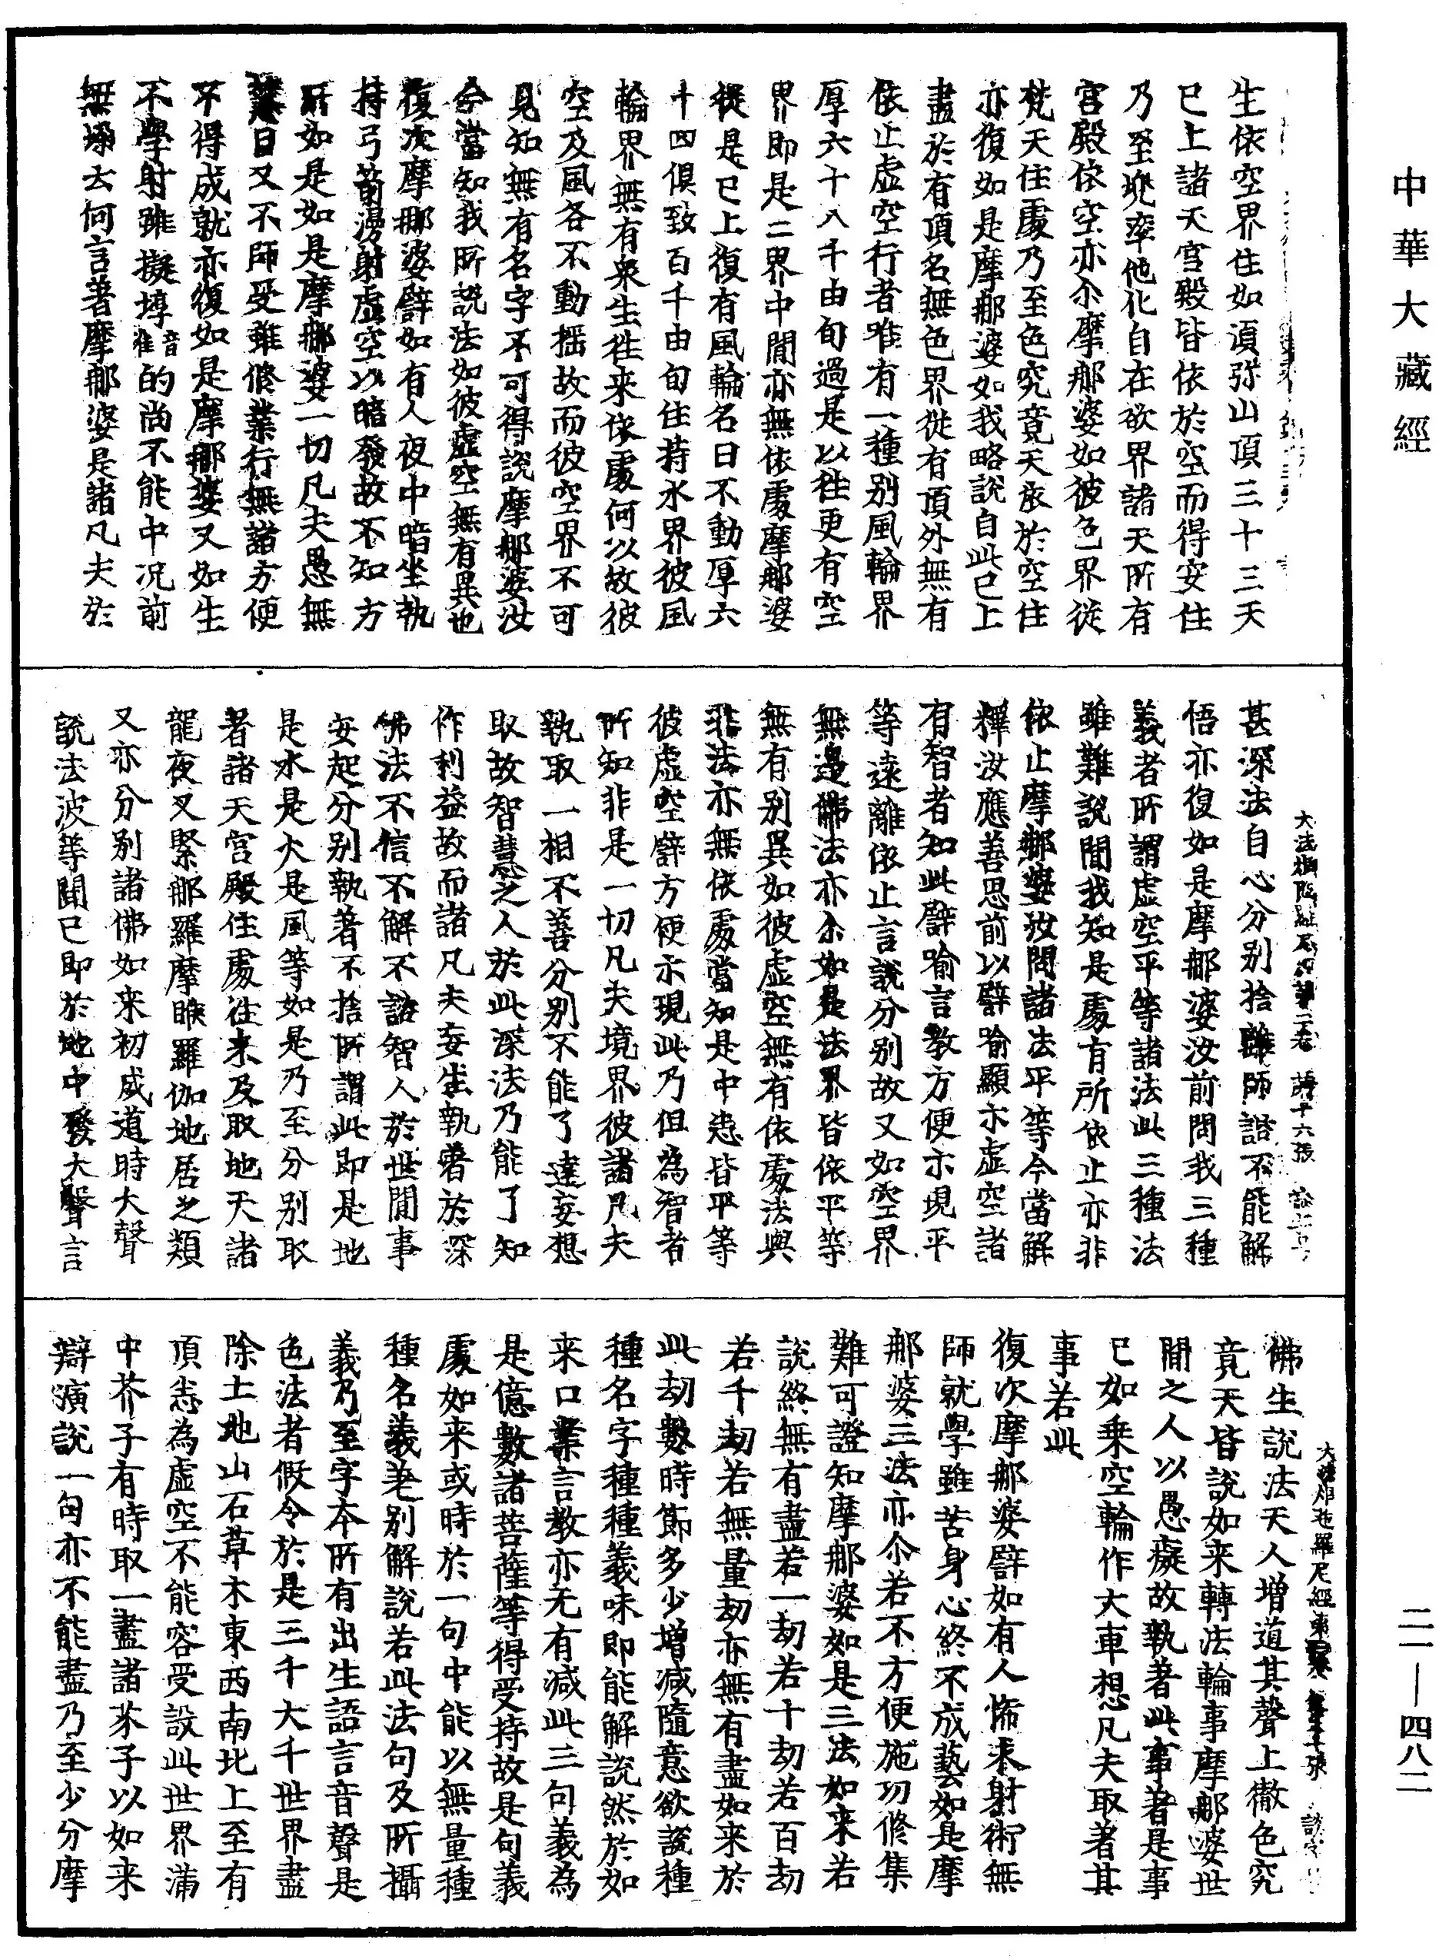 中華大藏經
生依空界住如湏弥山頂三十三天
已上諸天宫殿皆依於空而得安住
乃至兠率他化自在欲界諸天所有
宫殿依空亦尒摩那婆如彼色界從
梵天住處乃至色究竟天依於空住
亦復如是摩那婆如我略說自此已上
盡於有頂名無色界從有頂外無有
依止虚空行者唯有一種别風輪界
厚六十八千由旬過是以往更有空
界即是二界中間亦無依處摩那婆
從是已上復有風輪名曰不動厚六
十四俱致百千由旬住持水界彼風
輪界無有衆生徃来依處何以故彼
空及風各不動揺故而彼空界不可
見知無有名字不可得說摩那婆汝
今當知我所說法如彼虚空無有異也
復次摩那婆譬如有人夜中暗坐執
持弓箭漫射虚空以暗發故不知方
所如是如是摩那婆一切凡夫愚無
慧目又不師受雖修業行無諸方便
不得成就亦復如是摩那婆又如生
不學射雖擬埻音准的尚不能中况前
無埻去何言著摩那婆是諸凡夫於
大法炬陁羅尼經第二卷 第十六張
甚深法自心分别捨離師諮不能解
悟亦復如是摩那婆汝前問我三種
義者所謂虚空平等諸法此三種法
雖難說聞我知是處有所依止亦非
依止摩那婆汝問諸法平等今當解
釋汝應善思前以譬喻顯示虚空諸
有智者知此譬喻言教方便示現平
等遠離依止言說分别故又如空界
無邊佛法亦尒如是法界皆依平等
無有别異如彼虚空無有依處法與
非法亦無依處當知是中悉皆平等
彼虚空譬方便示現此乃但為智者
所知非是一切凡夫境界彼諸凡夫
執取一相不善分别不能了達妄想
取故智慧之人於此深法乃能了知
作利益故而諸凡夫妄生執著於深
佛法不信不解不諮智人於世間事
安起分别執著不捨所謂此即是地
是水是火是風等如是乃至分别取
著諸天宫殿住處徃来及取地天諸
龍夜叉緊那羅摩睺羅伽地居之類
又亦分别諸佛如来初成道時大聲
說法波等聞已即於地中發大聲言
大法炬陁羅尼經
佛生說法天人増道其聲上徹色究
竟天皆說如来轉法輪事摩那婆世
間之人以愚癡故執著此事者是事
已如乗空輪作大車想凡夫取著其
事若此
復次摩那婆譬如有人怖未射術無
師就學雖苦身心終不成藝如是摩
那婆三法亦尒若不方便施功修集
難可證知摩那婆如是三法如来若
說終無有盡若一劫若十劫若百劫
若千劫若無量劫亦無有盡如来於
此劫數時節多少増减隨意欲說種
種名字種種義味即能解說然於如
来口業言教亦无有减此三句義為
是億數諸菩薩等得受持故是句義
處如来或時於一句中能以無量種
種名義差别解說若此法句及所攝
義乃至字本所有出生語言音聲是
色法者假令於是三千大千世界盡
除土地山石草木東西南北上至有
頂悉為虚空不能容受設此世界滿
中芥子有時取一盡諸芥子以如来
辯演說一句亦不能盡乃至少分摩
二一—四八二